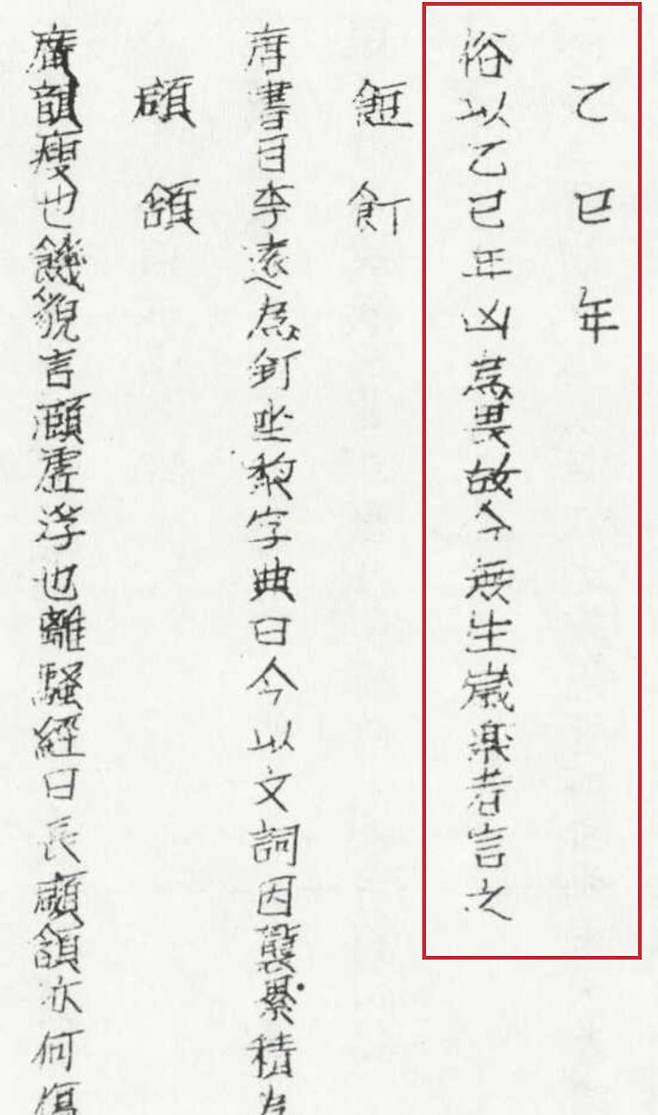 乙巳年
俗以乙巳年凶荒畏故今無生歳樂者言之
飣
唐書曰李遠為飣坐黎字典曰今以文詞因襲累積為
顑頷
廣韻瘦也饑貌言顑虛浮也離騷經曰長顑頷亦何傷